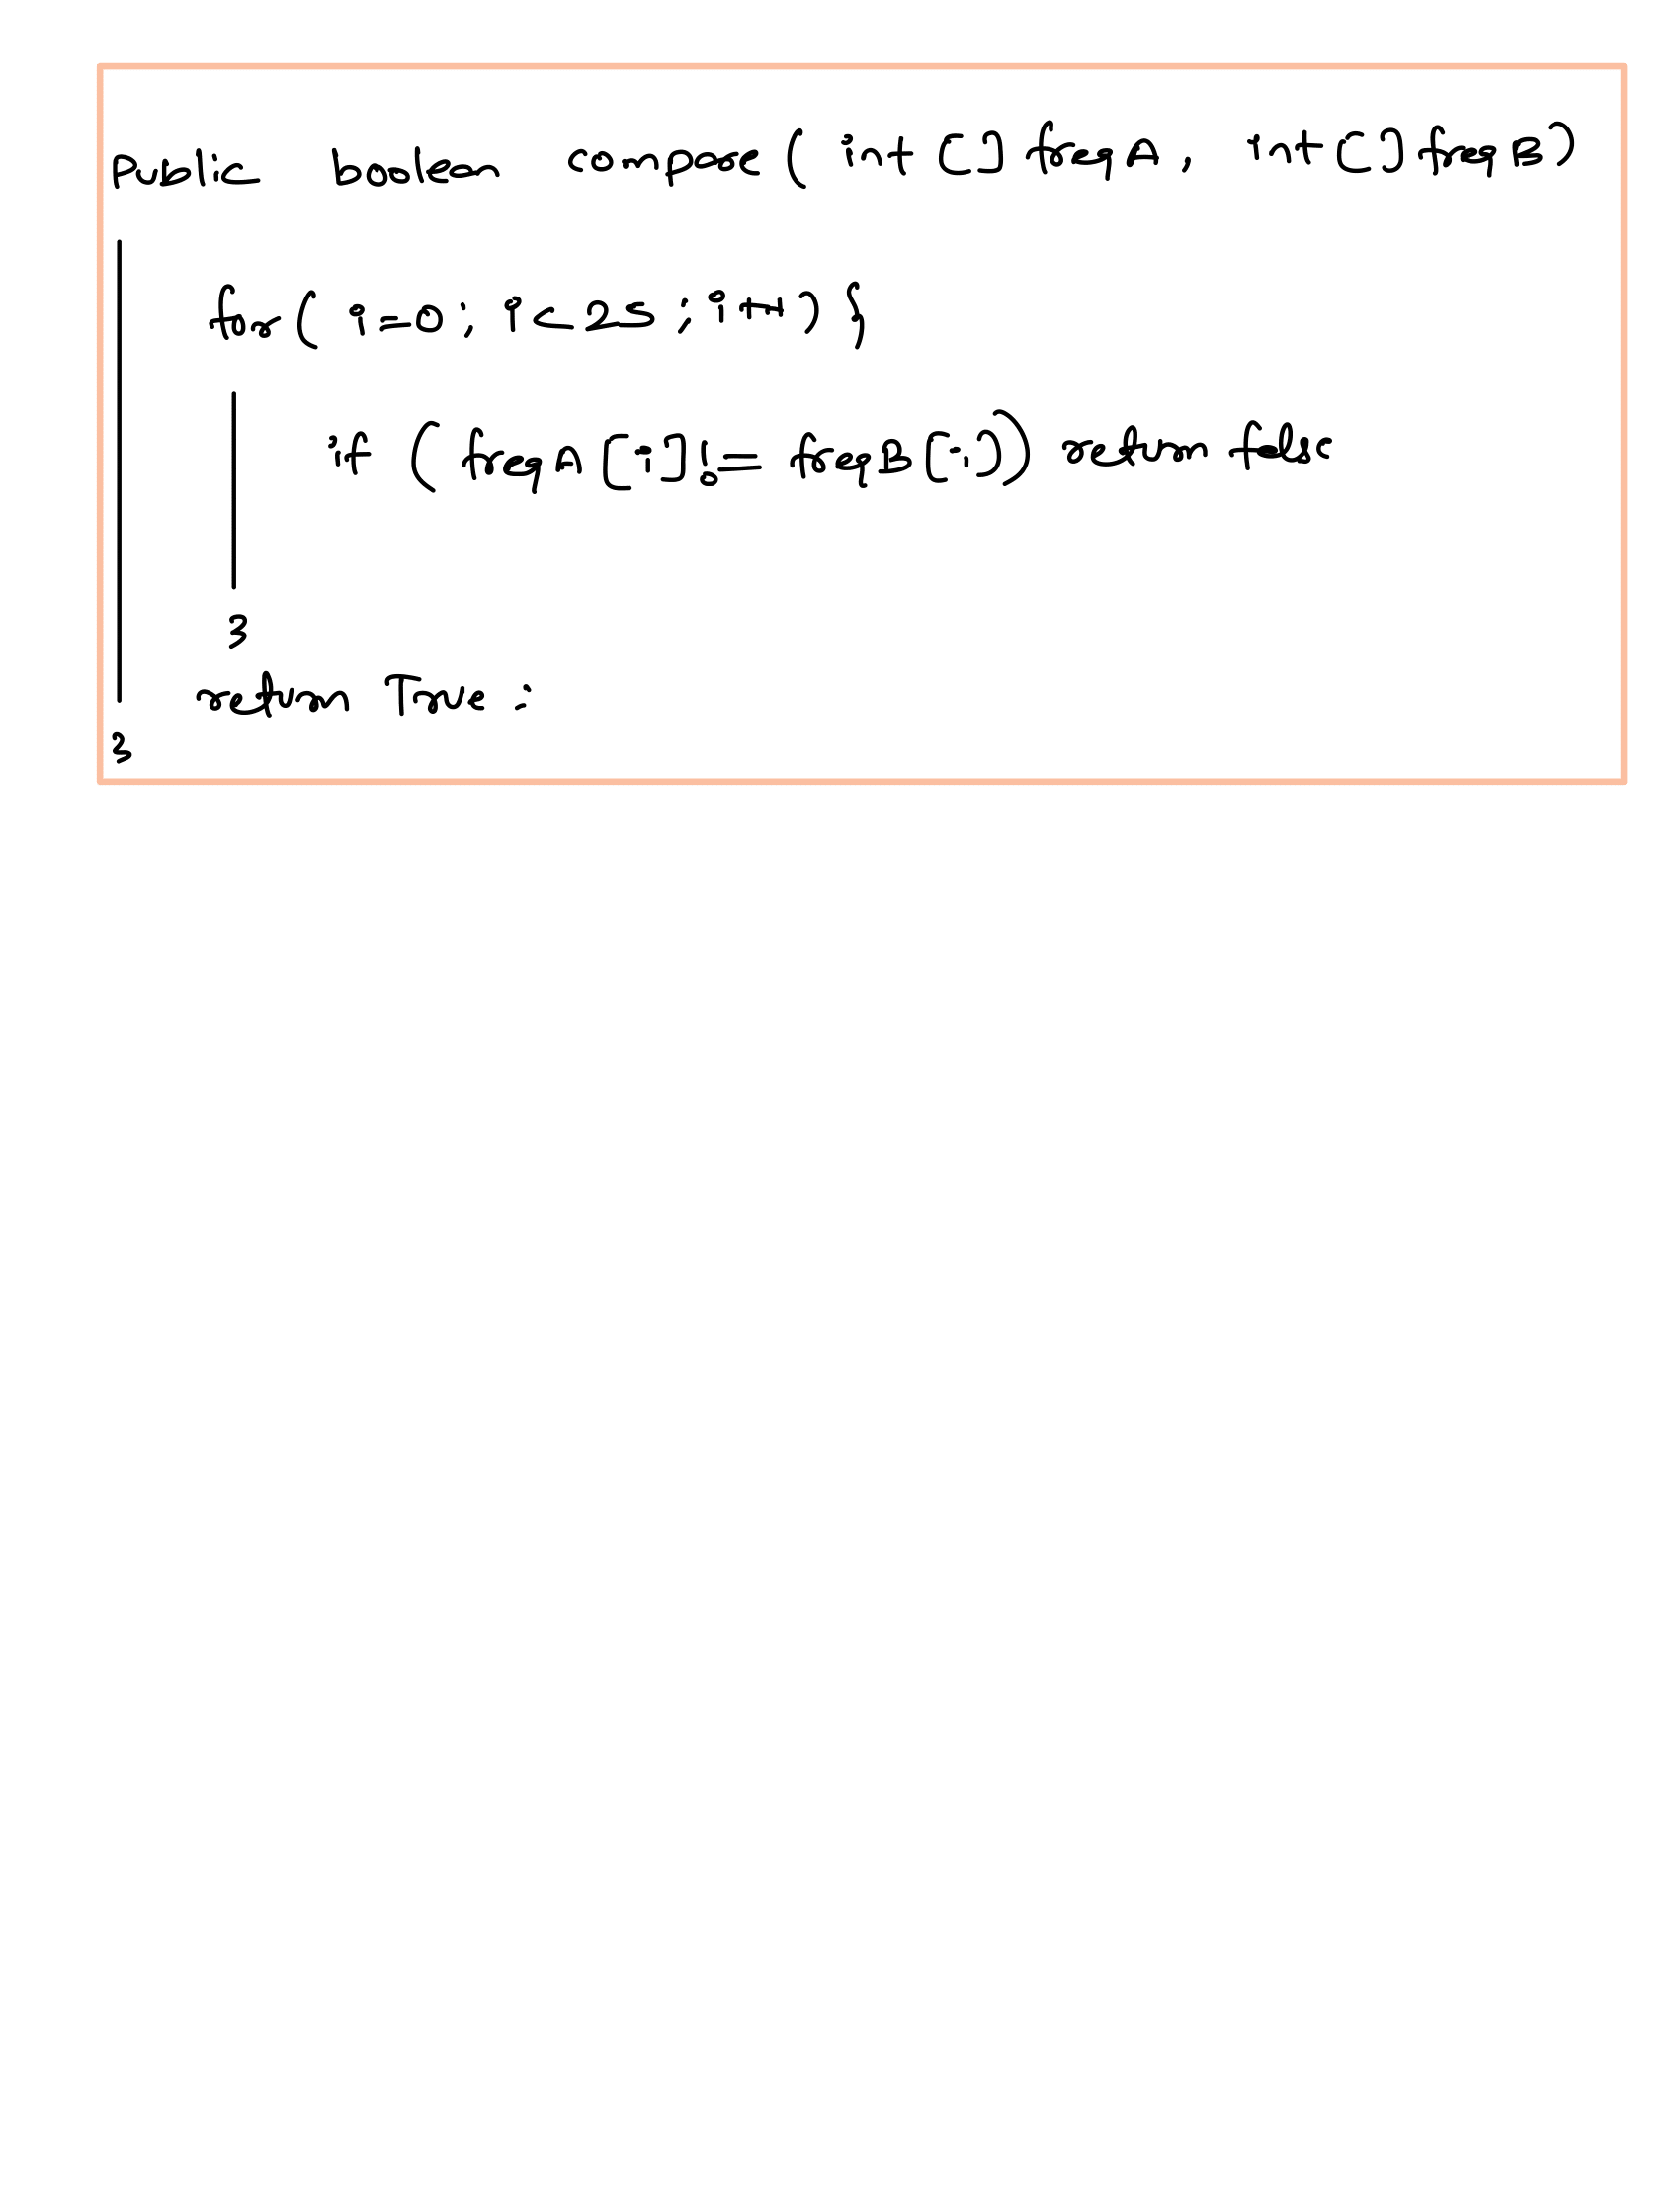 public boolean compare( int[] freqA, int[] freqB)
for( i=0; i<=25; i++) {
if (freqA[i] != freqB[i]) return false
}
return True;
}